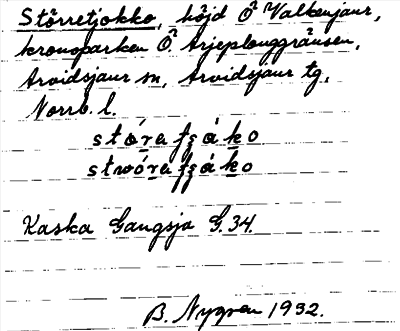 Störretjokko, höjd Ö Valkenjaur,
kronoparken Ö Arjeplouggränsen,
Arvidsjaur sn, Arvidsjaur tg,
Norrb. l.
Kaska Gangsja G.34.
B. Nygren 1932.